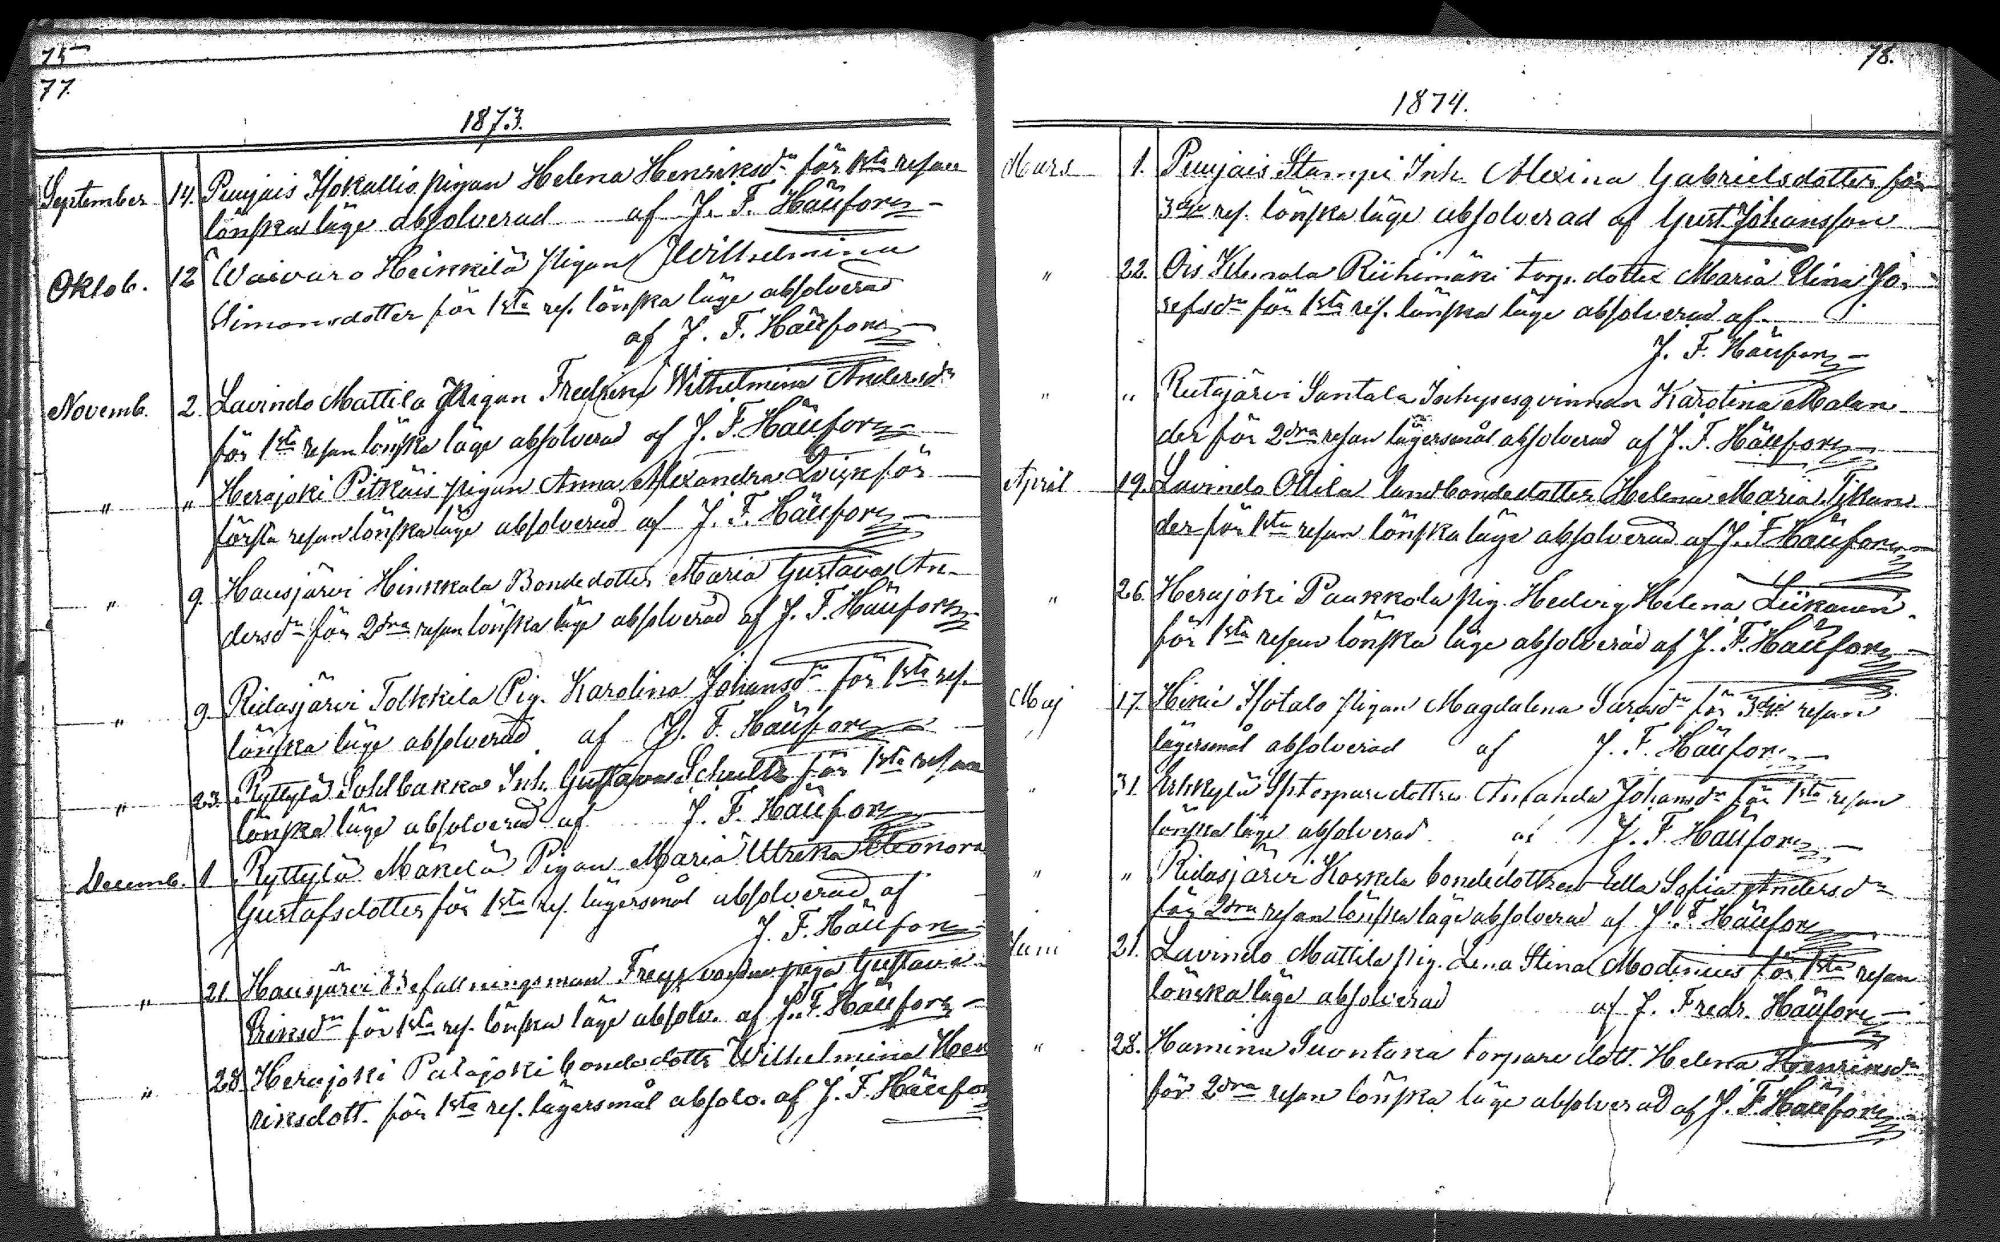 75
77.
1873.
September 14. Punjais Isokallio pigan Helena Henriksdr för 1sta resan
lönskaläge absolverad af J. F. Häüfors
Oktob. 12 Waivaro Heikkilä pigan Wilhelmina
Simonsdotter för 1sta res. lönska läge absolverad
af J. F. Häüfors
Novemb. 2. Lavindo Mattila Pigan Fredrika Wilhelmina Andersdr
för 1sta resan lönska läge absolverad af J. F. Häüfors
" " Herajoki Pitkäis pigan Anna Alexandra för
första resan lönskaläge absolverad af J. F. Häüfors
" 9. Hausjärvi Hinkkala Bondedotter Maria Gustava An-
dersdr för 2dra resan lönska läge absolverad af J. F. Häüfors
" 9. Ridasjärvi Tolkkila Pig. Karolina Johansdr för 1sta res.
lönska läge absolverad af J. F. Häüfors
" 23. Ryttylä Sohlbakka Inh. Gustava Schultz för 1sta resan
lönska läge absolverad af J. F. Häüfors
Decemb. 1 Ryttylä Mäkelä Pigan Maria Ulrika Eleonora
Gustafsdotter för 1sta res. lägersmål absolverad af
J. F. Häüfors
" 21 Hausjärvi Befallningsman piga Gustava
Eriksdr för 1sta res. lönska läge absolv. af J. F. Häüfors
" 28. Herajoki Palojoki bondedottr Wilhelmina Hen
riksdott. för 1sta res. lägersmål absolv. af J. F. Häüfors
78.
1874.
Mars 1. Punjais Stampi Inh. Alexina Gabrielsdotter för
3dje res. lönska läge absolverad af Gust Johansson
" 22. Ois Klemola Riihimäki torp. dotter Maria Elina Jo-
sefsdr för 1sta res. lönska läge absolverad af
J. F. Häüfors
" " Rutajärvi Santala Inhysesqvinnan Karolina Malan
der för 2dra resan lägersmål absolverad af J. F. Häüfors
April 19. Lavindo Ollila landbondedotter Helena Maria Tikan
der för 1sta resan lönska läge absolverad af J. F. Häüfors
" 26. Herajoki Paakkola pig. Hedvig Helena Liikanen
för 1sta resan lönska läge absolverad af J. F. Häüfors
Maj 17. Hikiä Isotalo pigan Magdalena Saradr för 3dje resan
lägersmål absolverad af J. F. Häüfors
" 31. Erkkylä torparedottern Amanda Johansdr för 1sta resan
lönska läge absolverad af J. F. Häüfors
" " Ridasjärvi Koskela bondedottren Edla Sofia Andersdr
för 2dra resan lönska läge absolverad af J. F. Häüfors
Juni 21. Lavindo Mattila pig. Lena Stina Modenius för 1sta resan
lönska läge absolverad af J. Fredr. Häüfors
" 28. Hamina Suontaka torpare dott. Helena Henriksdr
för 2dra resan lönska läge absolverad af J. F. Häüfors